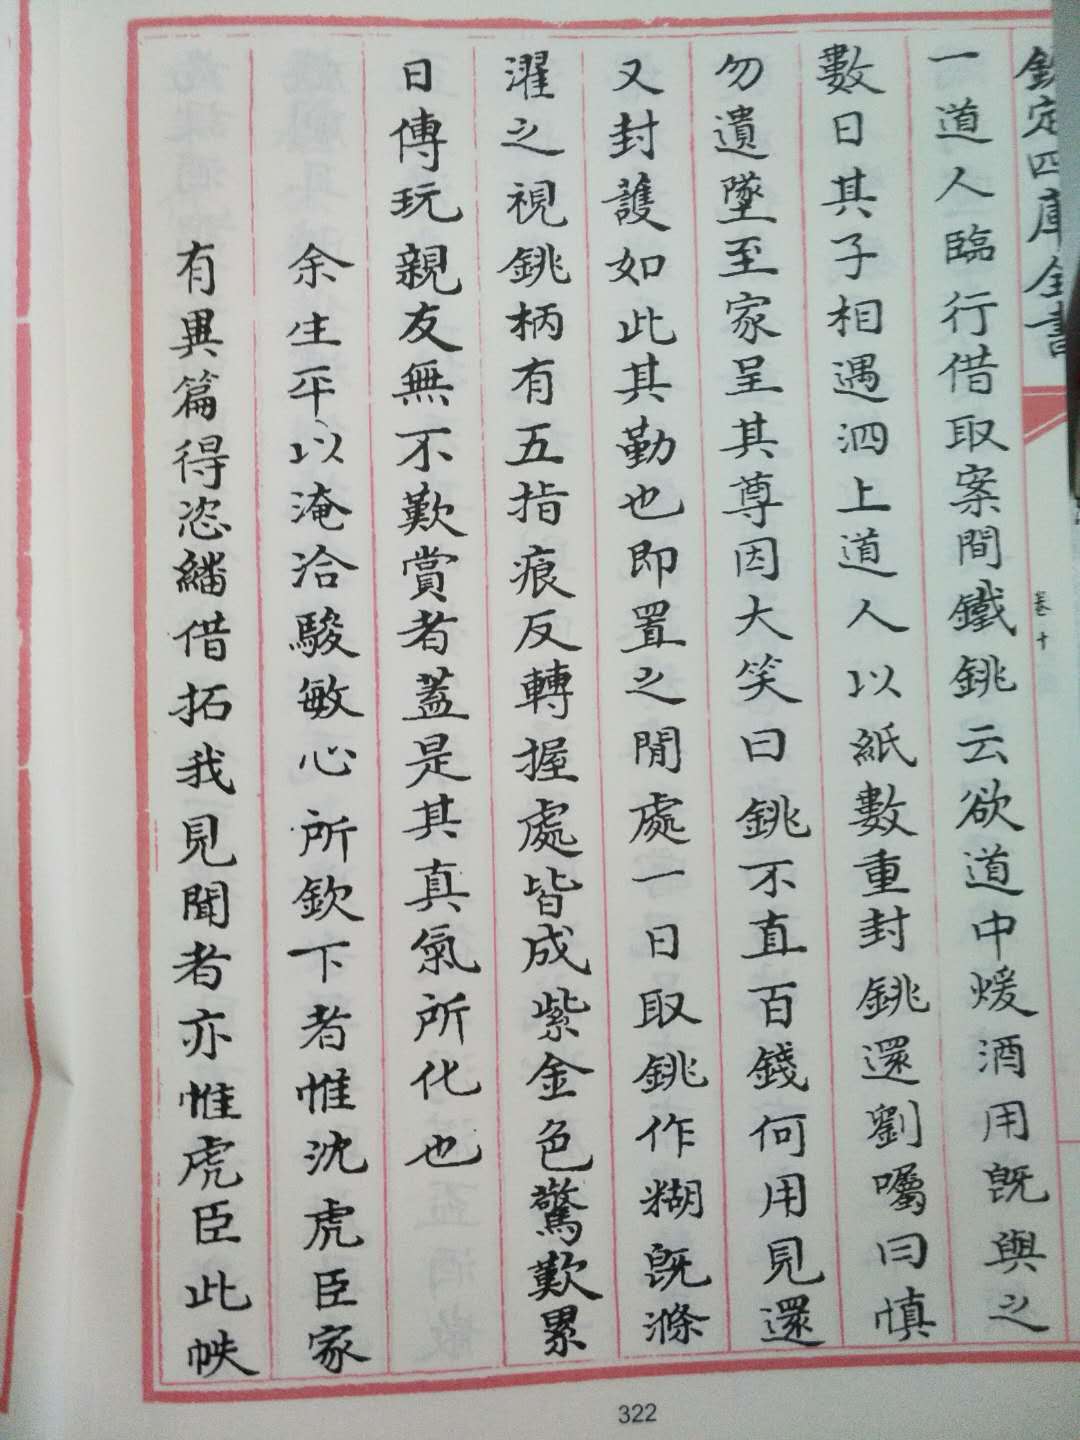 欽定四庫全書
卷十
一道人臨行借取案間鐵銚云欲道中煖酒用既與之
數日其子相遇泗上道人以紙數重封銚還劉囑曰慎
勿遺墜至家呈其尊因大笑曰銚不直百錢何用見還
又封護如此其勤也即置之閒處一日取銚作糊既滌
濯之視銚柄有五指痕反轉握處皆成紫金色驚歎累
日傳玩親友無不歎賞者蓋是其真氣所化也
余生平以淹洽駿敏心所欽下者惟沈虎臣家
有異篇得恣繙借拓我見聞者亦惟虎臣此帙
322